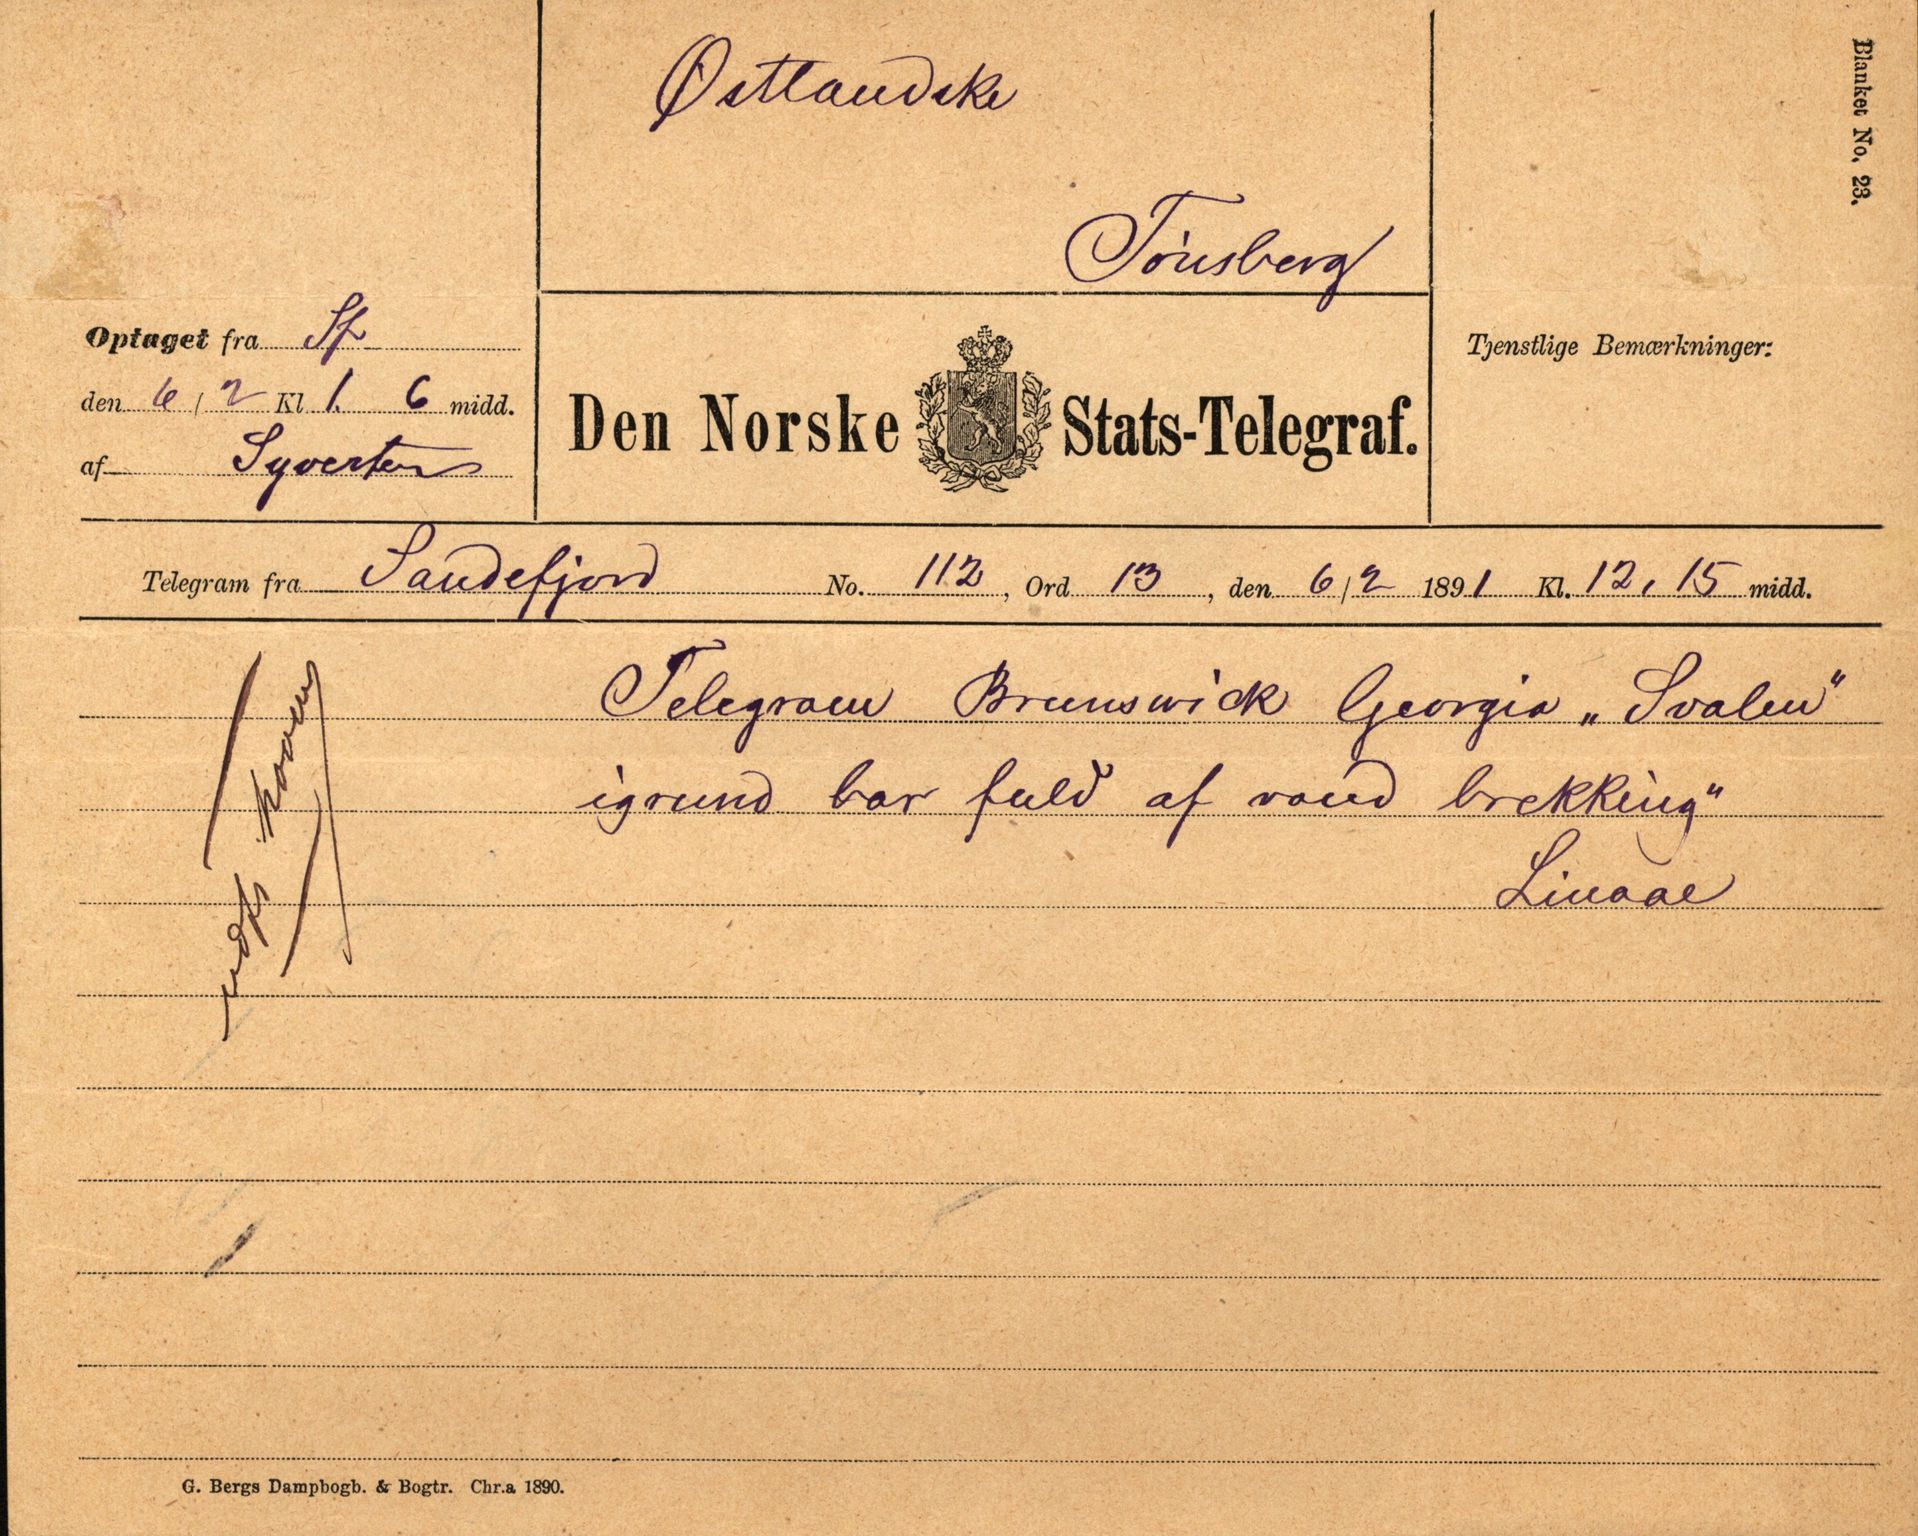 Østlandske
Tønsberg
Blanket No. 23.
Optaget fra Sf
den 6/2 Kl 1. 6 midd.
af Syvertsen
Den Norske Stats-Telegraf.
Tjenstlige Bemærkninger:
Telegram fra Sandefjord No. 112, Ord 13, den 6/2 1891 Kl. 12,15 midd.
Telegram Brunswick Georgia „Svalen"
igrund bar fuld af vand brekking"
Linaae
G. Bergs Dampbogb. & Bogtr. Chr.a 1890.